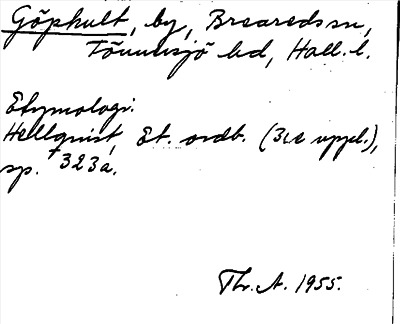 Göphult, by, Breareds sn,
Tönnersjö hd, Hall. l.
Etymologi.
Hellquist, Et. ordb. (3:e uppl.),
sp. 323a.
Th. A. 1955.